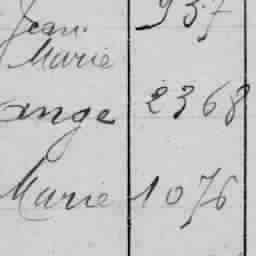 Jean 937
Marie
ange 2368
Marie 1076